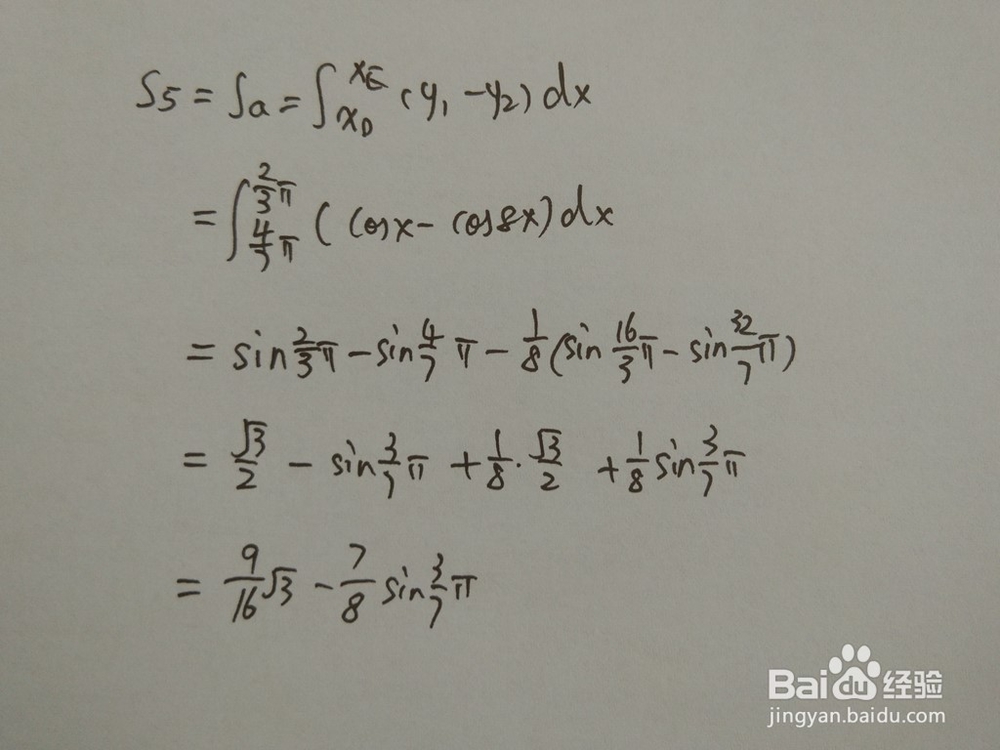 S5 = ∫a = ∫_{x_D}^{x_E} (y₁ - y₂) dx
= ∫_{4/7 π}^{2/3 π} (cosx - cos8x) dx
= sin 2/3 π - sin 4/7 π - 1/8 (sin 16/3 π - sin 32/7 π)
= √3/2 - sin 3/7 π + 1/8 · √3/2 + 1/8 sin 3/7 π
= 9/16 √3 - 7/8 sin 3/7 π
Baidu 经验
jingyan.baidu.com